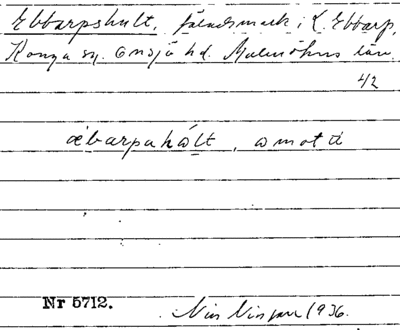 Ebbarpshult, fäladsmark i L. Ebbarp,
Konga sn. Onsjö hd. Malmöhus län.
42
æbarpahålt, omotä
Nr 5712.
Nils Nilsson 1936.